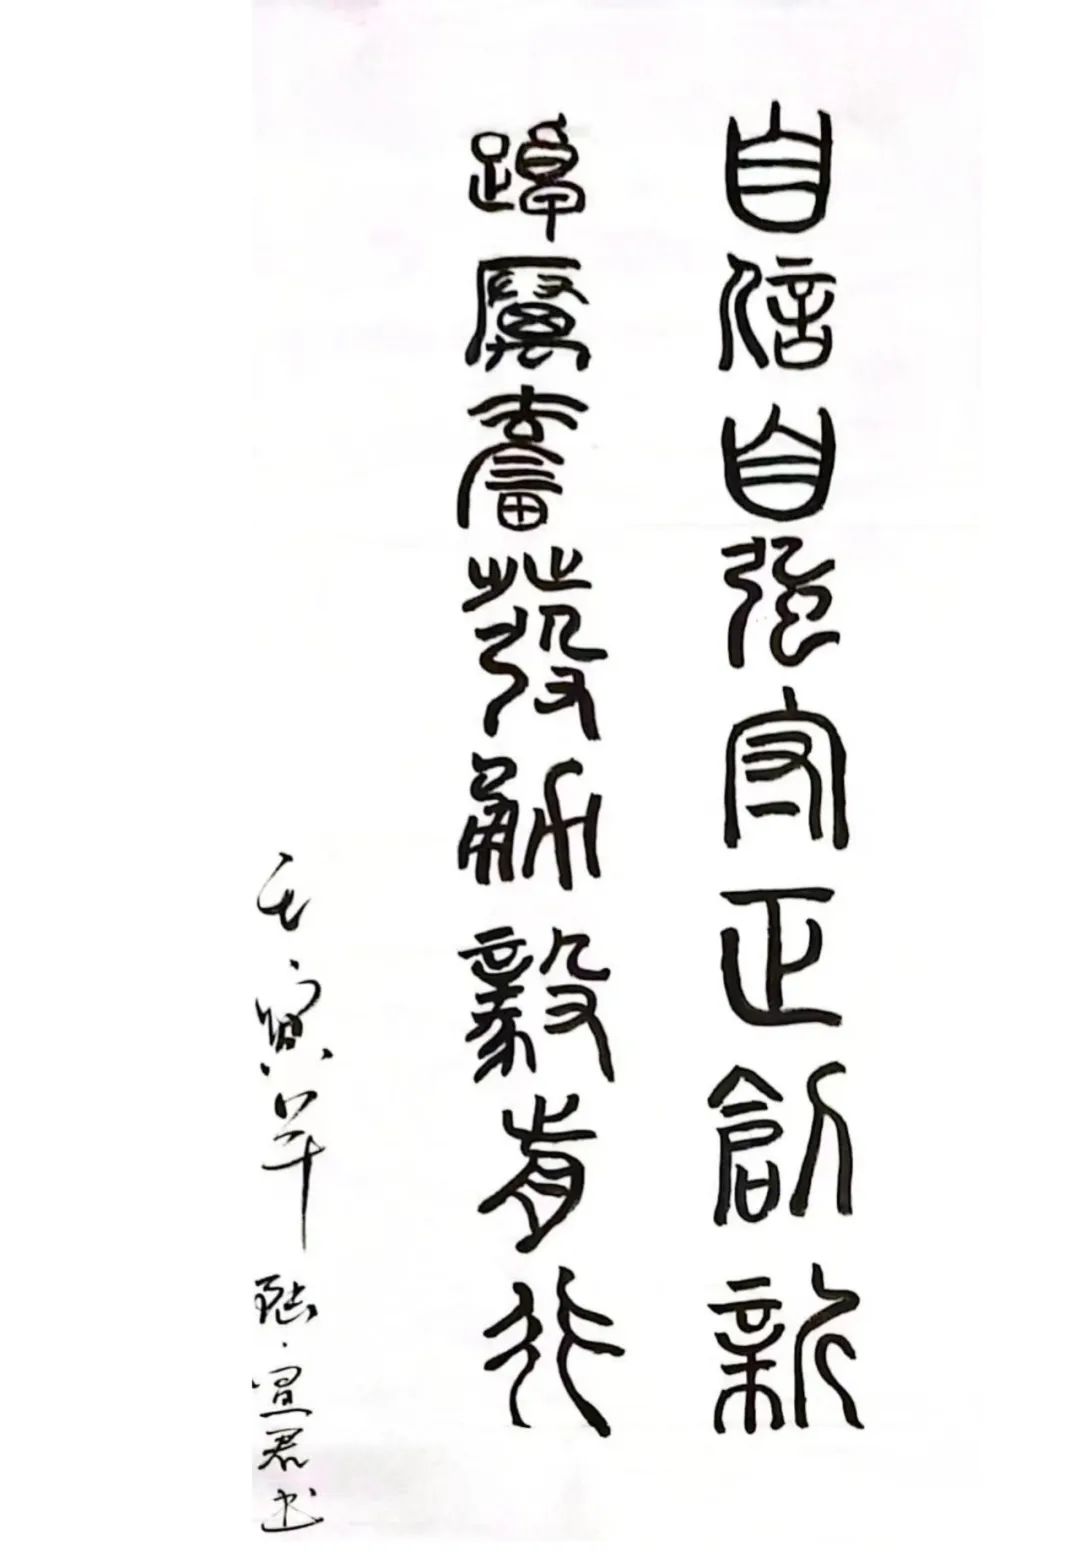 自信自強守正創新
踔厲奮發勇毅前行
壬寅年 宣君书